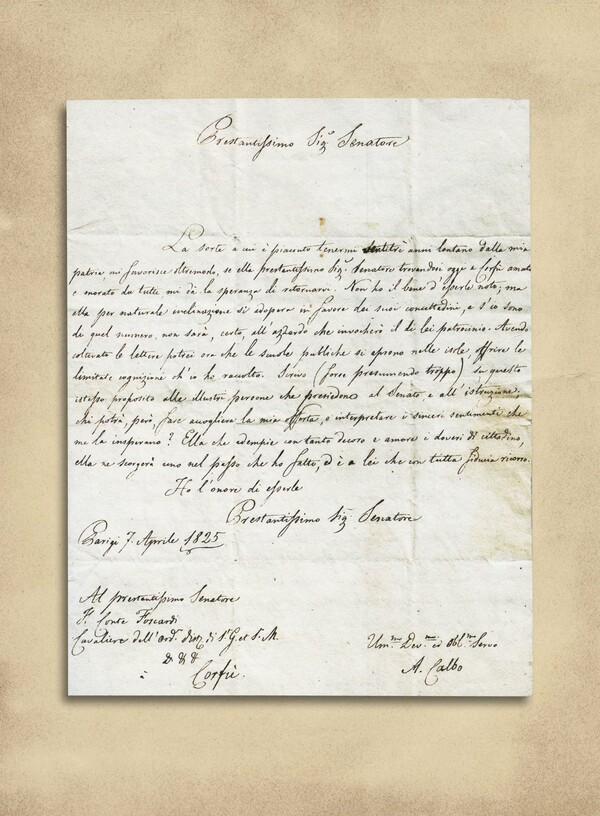 Prestantissimo Sig.r Senatore
La sorte a cui è piaciuto tenermi ventitrè anni lontano dalla mia
patria mi favorisce oltremodo, se ella prestantissimo Sig.r Senatore trovandosi oggi a Corfù amato
e onorato da tutti mi dà la speranza di ritornarvi. Non ho il bene d'esserle noto; ma
ella per naturale inclinazione si adopera in favore dei suoi concittadini, e s'io sono
di quel numero, non sarà, certo, all'azzardo che invocherò il di lei patrocinio. Avendo
coltivato le lettere potrei ora che le scuole publiche si aprono nelle isole, offrire le
limitate cognizioni ch'io ho raccolto. Scrivo (forse presumendo troppo) su questo
istesso proposito alle illustri persone che presiedono al Senato e all'istruzione;
chi potrà, però, fare accogliere la mia offerta, o interpretare i sinceri sentimenti che
me la inspirano? Ella che adempie con tanto decoro e amore i doveri di cittadino,
ella ne scorgerà uno nel passo che ho fatto, ed è a lei che con tutta fiducia ricorro.
Ho l'onore di esserle
Prestantissimo Sig.r Senatore
Parigi 7. Aprile 1825
Al prestantissimo Senatore
Il Conte Foscardi
Cavaliere dell'ord. dist. di S.G. et S.M
& & &
à Corfù.
Um.mo Dev.mo ed obl.mo Servo
A. Calbo